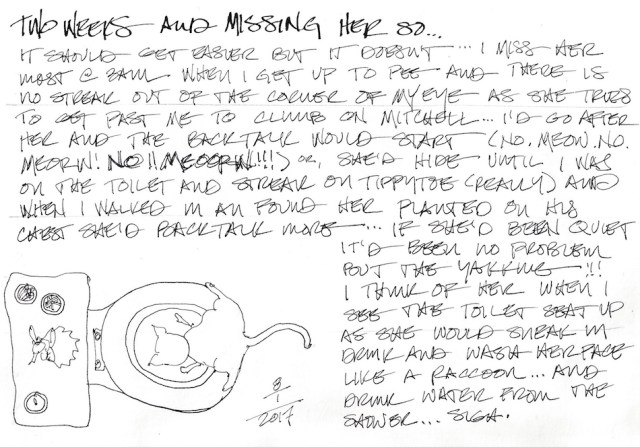 TWO WEEKS AND MISSING HER SO...
IT SHOULD GET EASIER BUT IT DOESN'T... I MISS HER
MOST @ 3AM. WHEN I GET UP TO PEE AND THERE IS
NO STREAK OUT OF THE CORNER OF MY EYE AS SHE TRIES
TO GET PAST ME TO CLIMB ON MITCHELL... I'D GO AFTER
HER AND THE BACKTALK WOULD START (NO. MEOW. NO.
MEORW! NO!! MEOORW!!!) OR, SHE'D HIDE UNTIL I WAS
ON THE TOILET AND STREAK ON TIPPYTOE (REALLY) AND
WHEN I WALKED IN AN FOUND HER PLANTED ON HIS
CHEST SHE'D BACKTALK MORE... IF SHE'D BEEN QUIET
IT'D BEEN NO PROBLEM
BUT THE YAKKING!!!
I THINK OF HER WHEN I
SEE THE TOILET SEAT UP
AS SHE WOULD SNEAK IN
DRINK AND WASH HER FACE
LIKE A RACCOON... AND
DRINK WATER FROM THE
SHOWER... SIGH.
8/1
2017